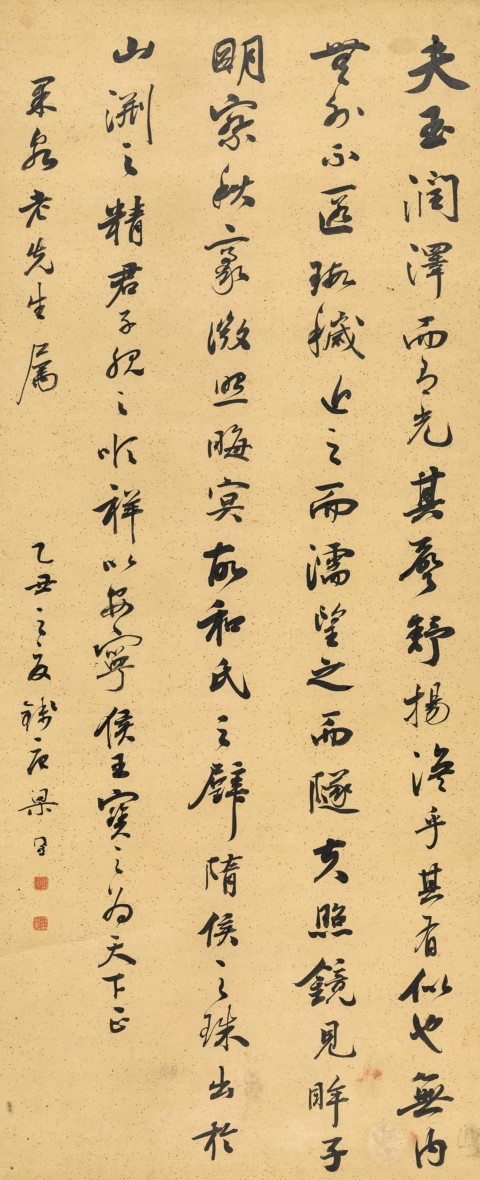 夫玉潤澤而有光其聲舒揚渙乎其有似也無內
無外不匿瑕穢近之而濡望之而隧夫照鏡見眸子
明察秋豪微照晦冥故和氏之璧隋侯之珠出於
山淵之精君子服之順祥以安寧侯王寶之為天下正
泉老先生属
乙丑之夏錢唐梁